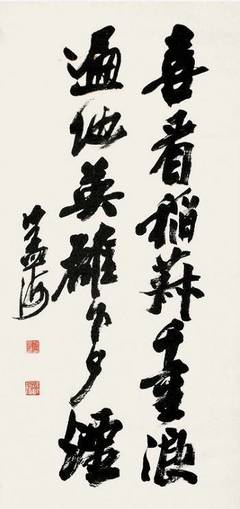 喜看稻菽千重浪
遍地英雄下夕煙
孟海